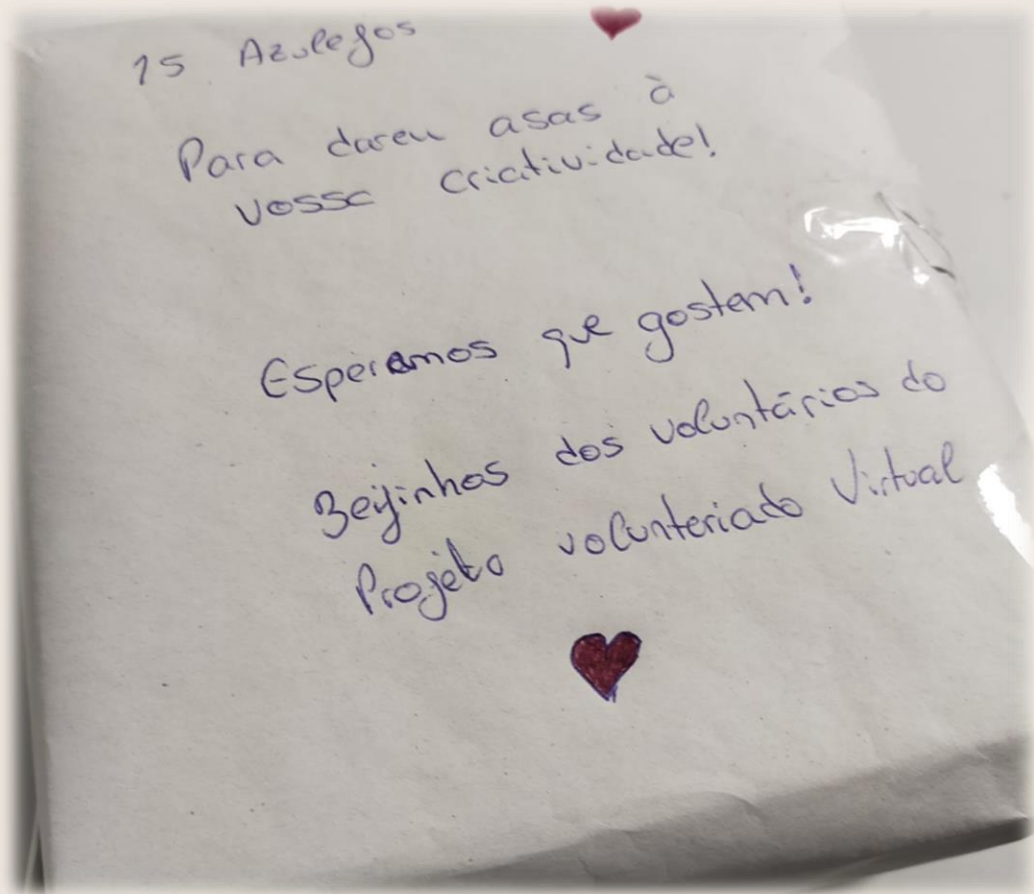 15 Azulejos
Para darem asas à
vossa criatividade!
Esperamos que gostem!
Beijinhos dos voluntários do
Projeto voluntariado Virtual